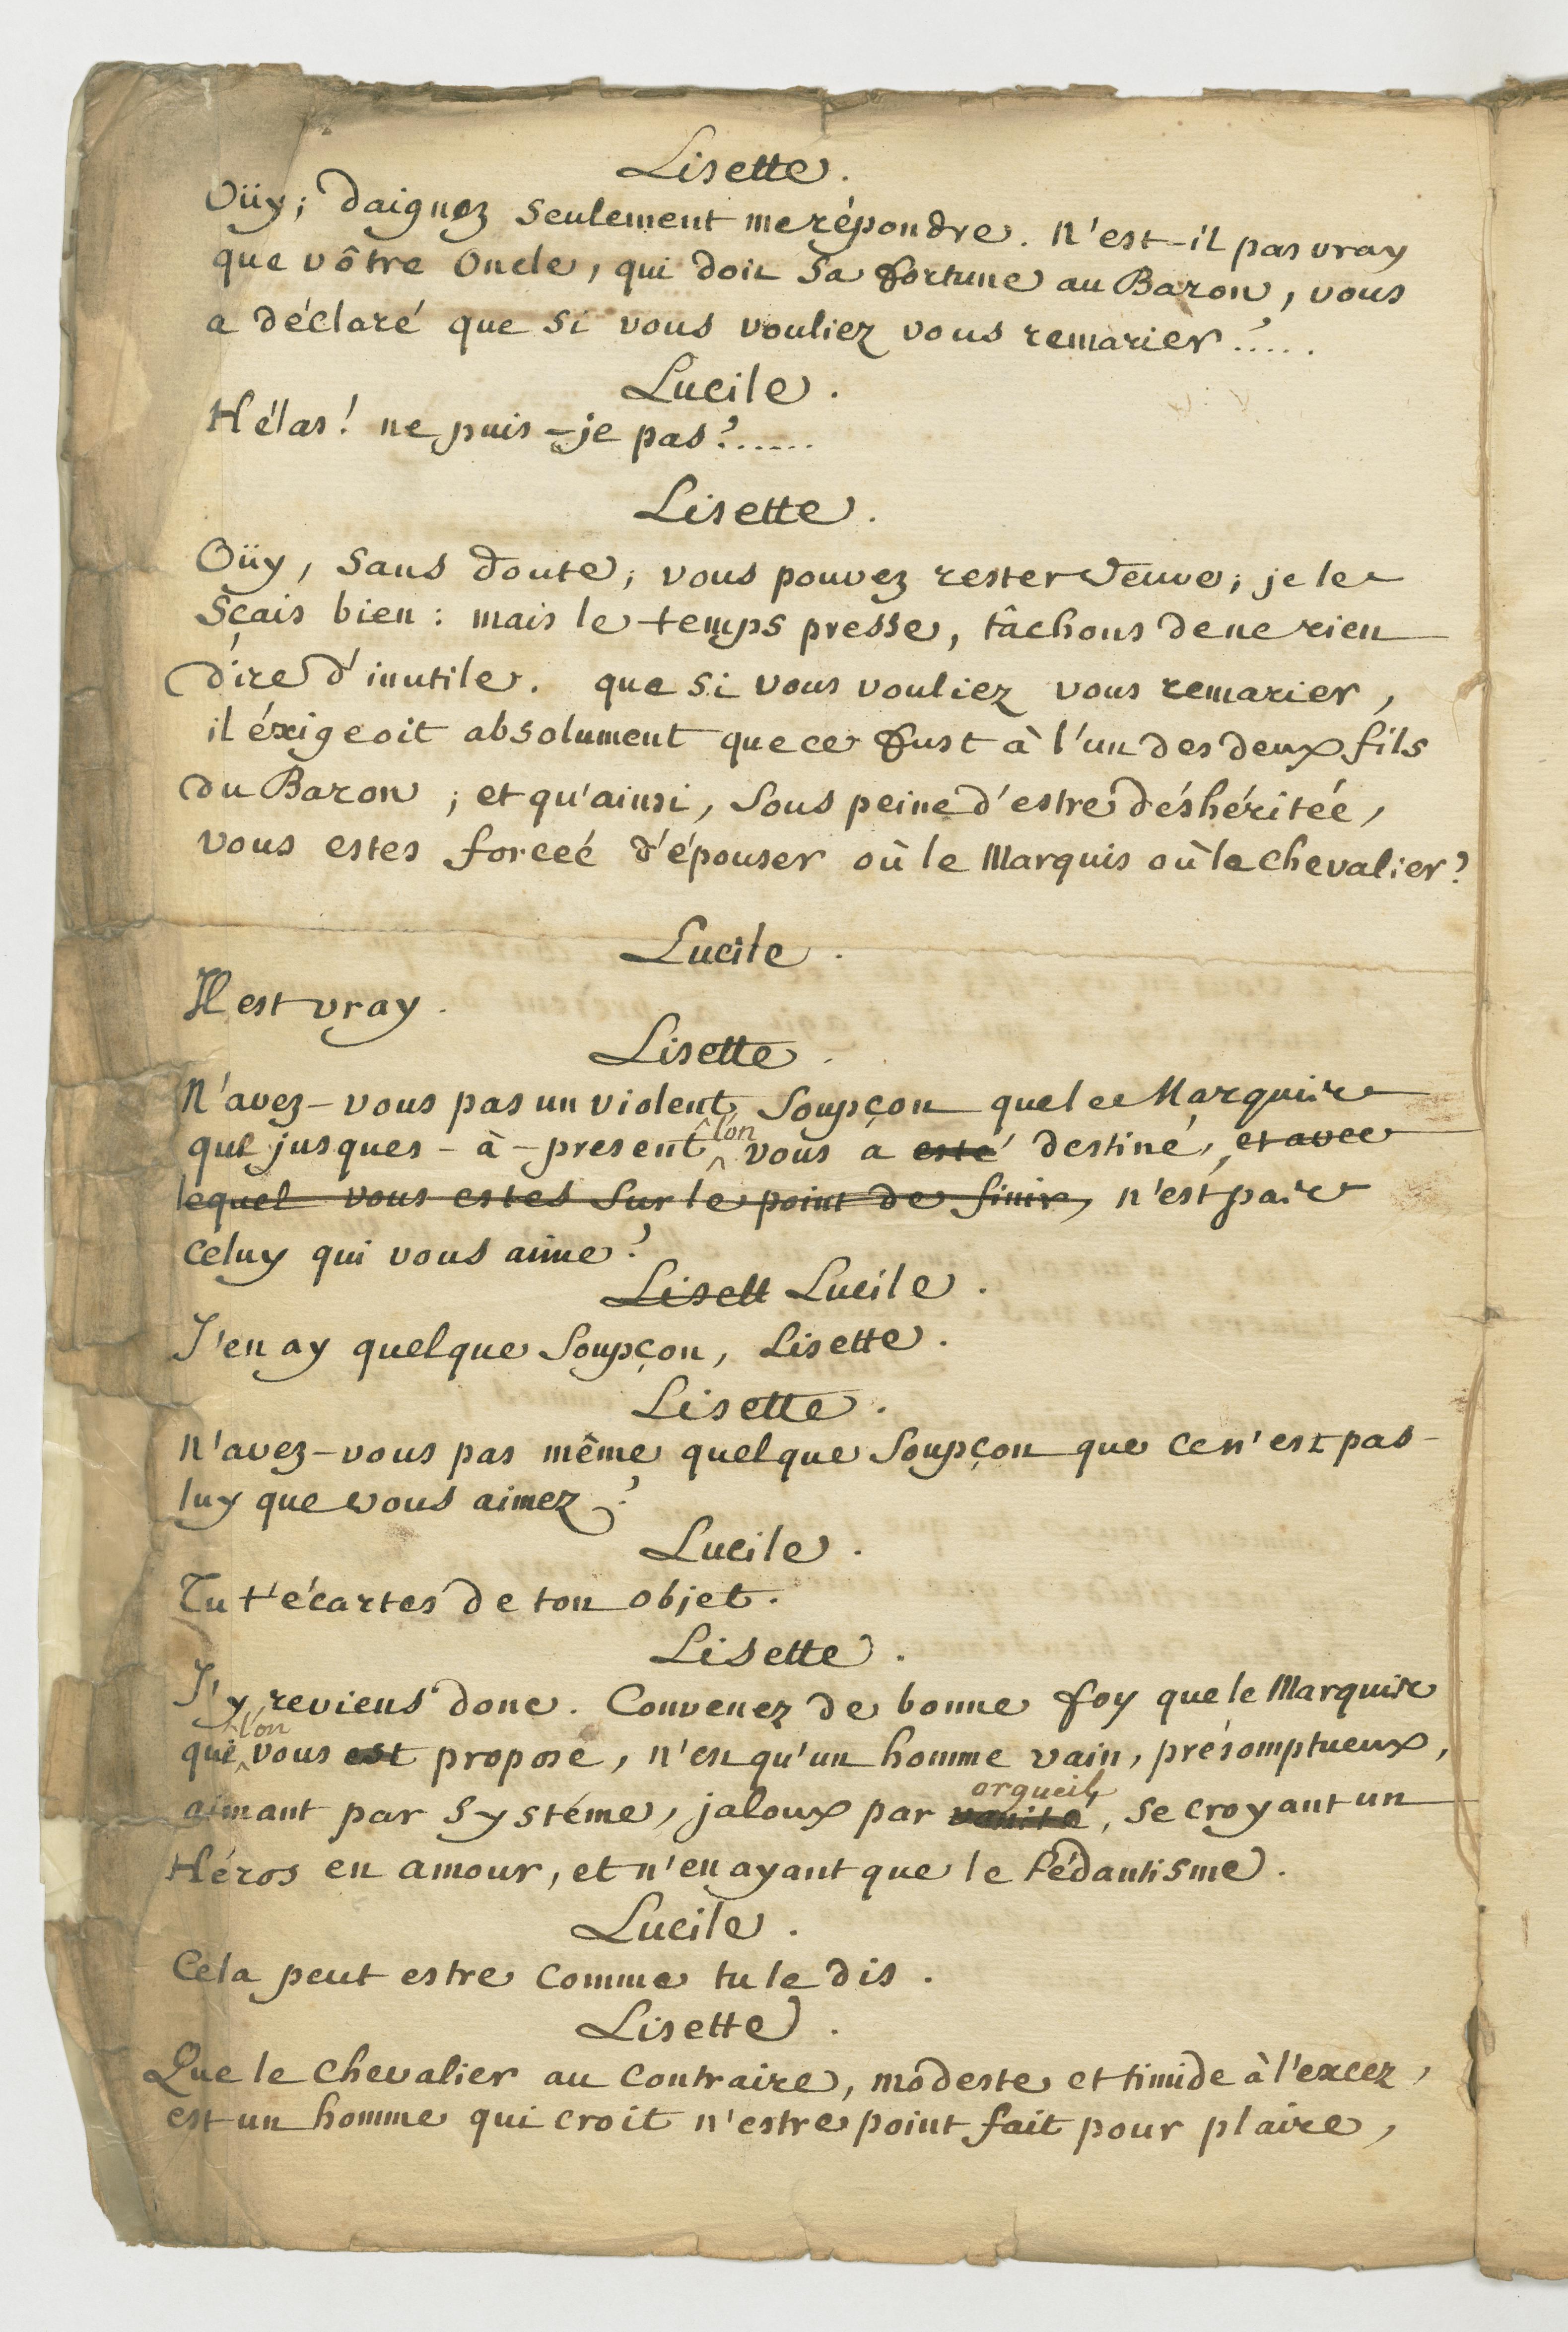 Lisette.
Oüy; daignez seulement me répondre. N'est-il pas vray
que vôtre Oncle, qui doit sa fortune au Baron, vous
a déclaré que si vous vouliez vous remarier?.....
Lucile.
Hélas! ne puis-je pas?......
Lisette.
Oüy, sans doute; vous pouvez rester veuve; je le
sçais bien: mais le temps presse, tâchons de ne rien
dire d'inutile. que si vous vouliez vous remarier,
il éxigeoit absolument que ce fust à l'un des deux fils
du Baron; et qu'ainsi, sous peine d'estre déshéritée,
vous estes forceé d'épouser où le Marquis où le chevalier?
Lucile.
Il est vray.
Lisette.
N'avez-vous pas un violent soupçon que le Marquis
l'on
que jusques-à-present vous a esté destiné, et avec
lequel vous estes sur le point de finir, n'est pas
celuy qui vous aime?
Lisett Lucile.
J'en ay quelque soupçon, Lisette.
Lisette.
N'avez-vous pas même quelque soupçon que ce n'est pas
luy que vous aimez?
Lucile.
Tu t'écartes de ton objet.
Lisette.
J'y reviens donc. Convenez de bonne foy que le Marquis
l'on
que vous est propose, n'est qu'un homme vain, présomptueux,
orgueil,
aimant par systéme, jaloux par vanité, se croyant un
Héros en amour, et n'en ayant que le Pédantisme.
Lucile.
Cela peut estre comme tu le dis.
Lisette.
Que le chevalier au contraire, modeste et timide à l'excez,
est un homme qui croit n'estre point fait pour plaire,